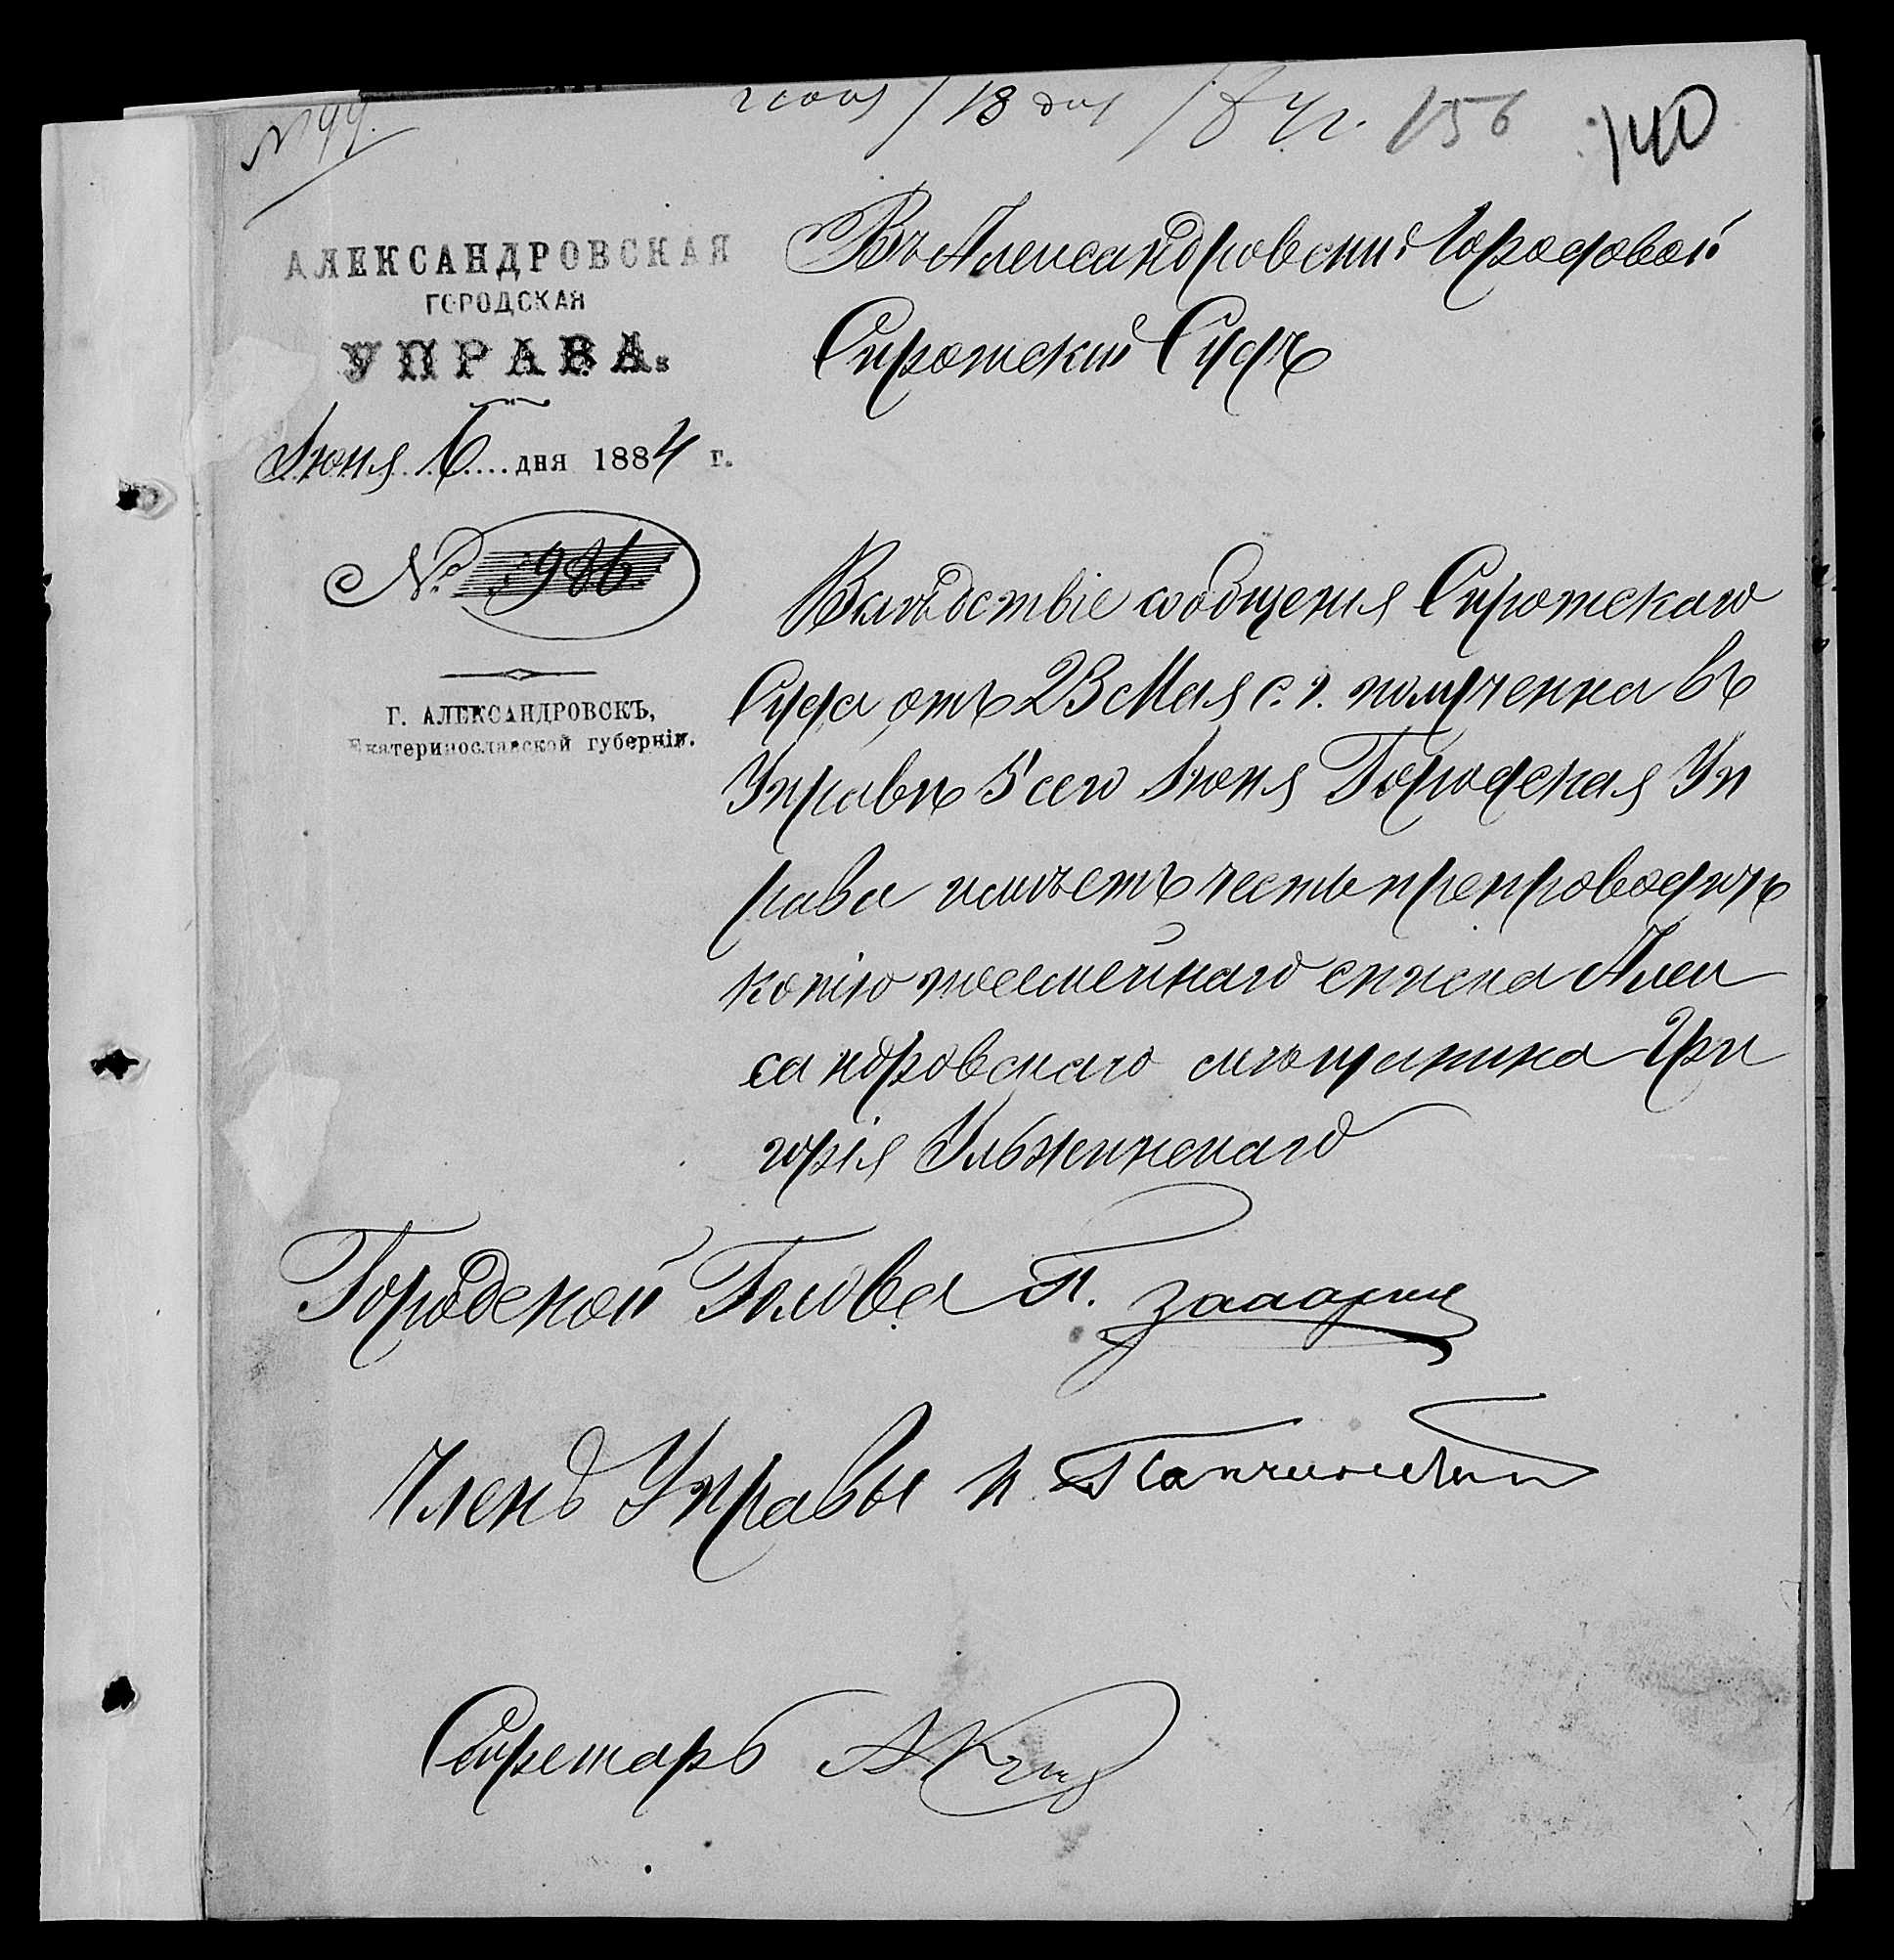 № 99.
июня 18 дня 1884 г. 156 140
АЛЕКСАНДРОВСКАЯ
ГОРОДСКАЯ
УПРАВА.
Июня 6 дня 1884 г.
№ 986.
Г. АЛЕКСАНДРОВСКЪ,
Екатеринославской губерніи.
Въ Александровский Городовой
Сиротский Судъ
Вслѣдствіе сообщения Сиротскаго
Суда, отъ 23 Мая с. г. полученна въ
Управѣ 5 сего Июня Городская Уп
рава имѣетъ честь препроводить
копію посемейнаго списка Алек
сандровскаго мѣщанина Гри
горія
Городской Голова П.
Членъ Управы
Секретарь